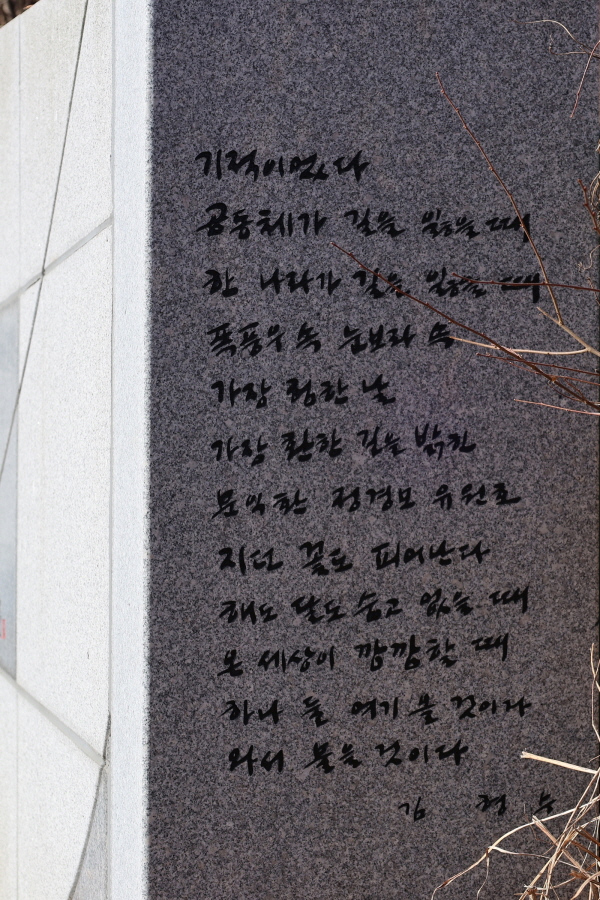 기적이었다
공동체가 길을 잃었을 때
한 나라가 길을 잃었을 때
폭풍우 속 눈보라 속
가장 험한 날
가장 환한 길을 밝힌
문익환 정경모 유원호
지던 꽃도 피어난다
해도 달도 숨고 없을 때
온 세상이 깜깜할 때
하나 둘 여기 올 것이다
와서 물을 것이다
김 형 수